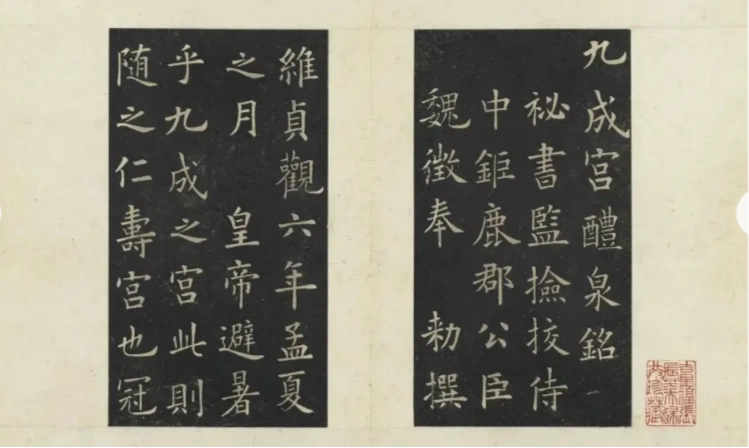 九成宫醴泉銘
祕書監撿挍侍
中鉅鹿郡公臣
魏徵奉 勑撰
維貞觀六年孟夏
之月 皇帝避暑
乎九成之宮此則
随之仁壽宫也冠